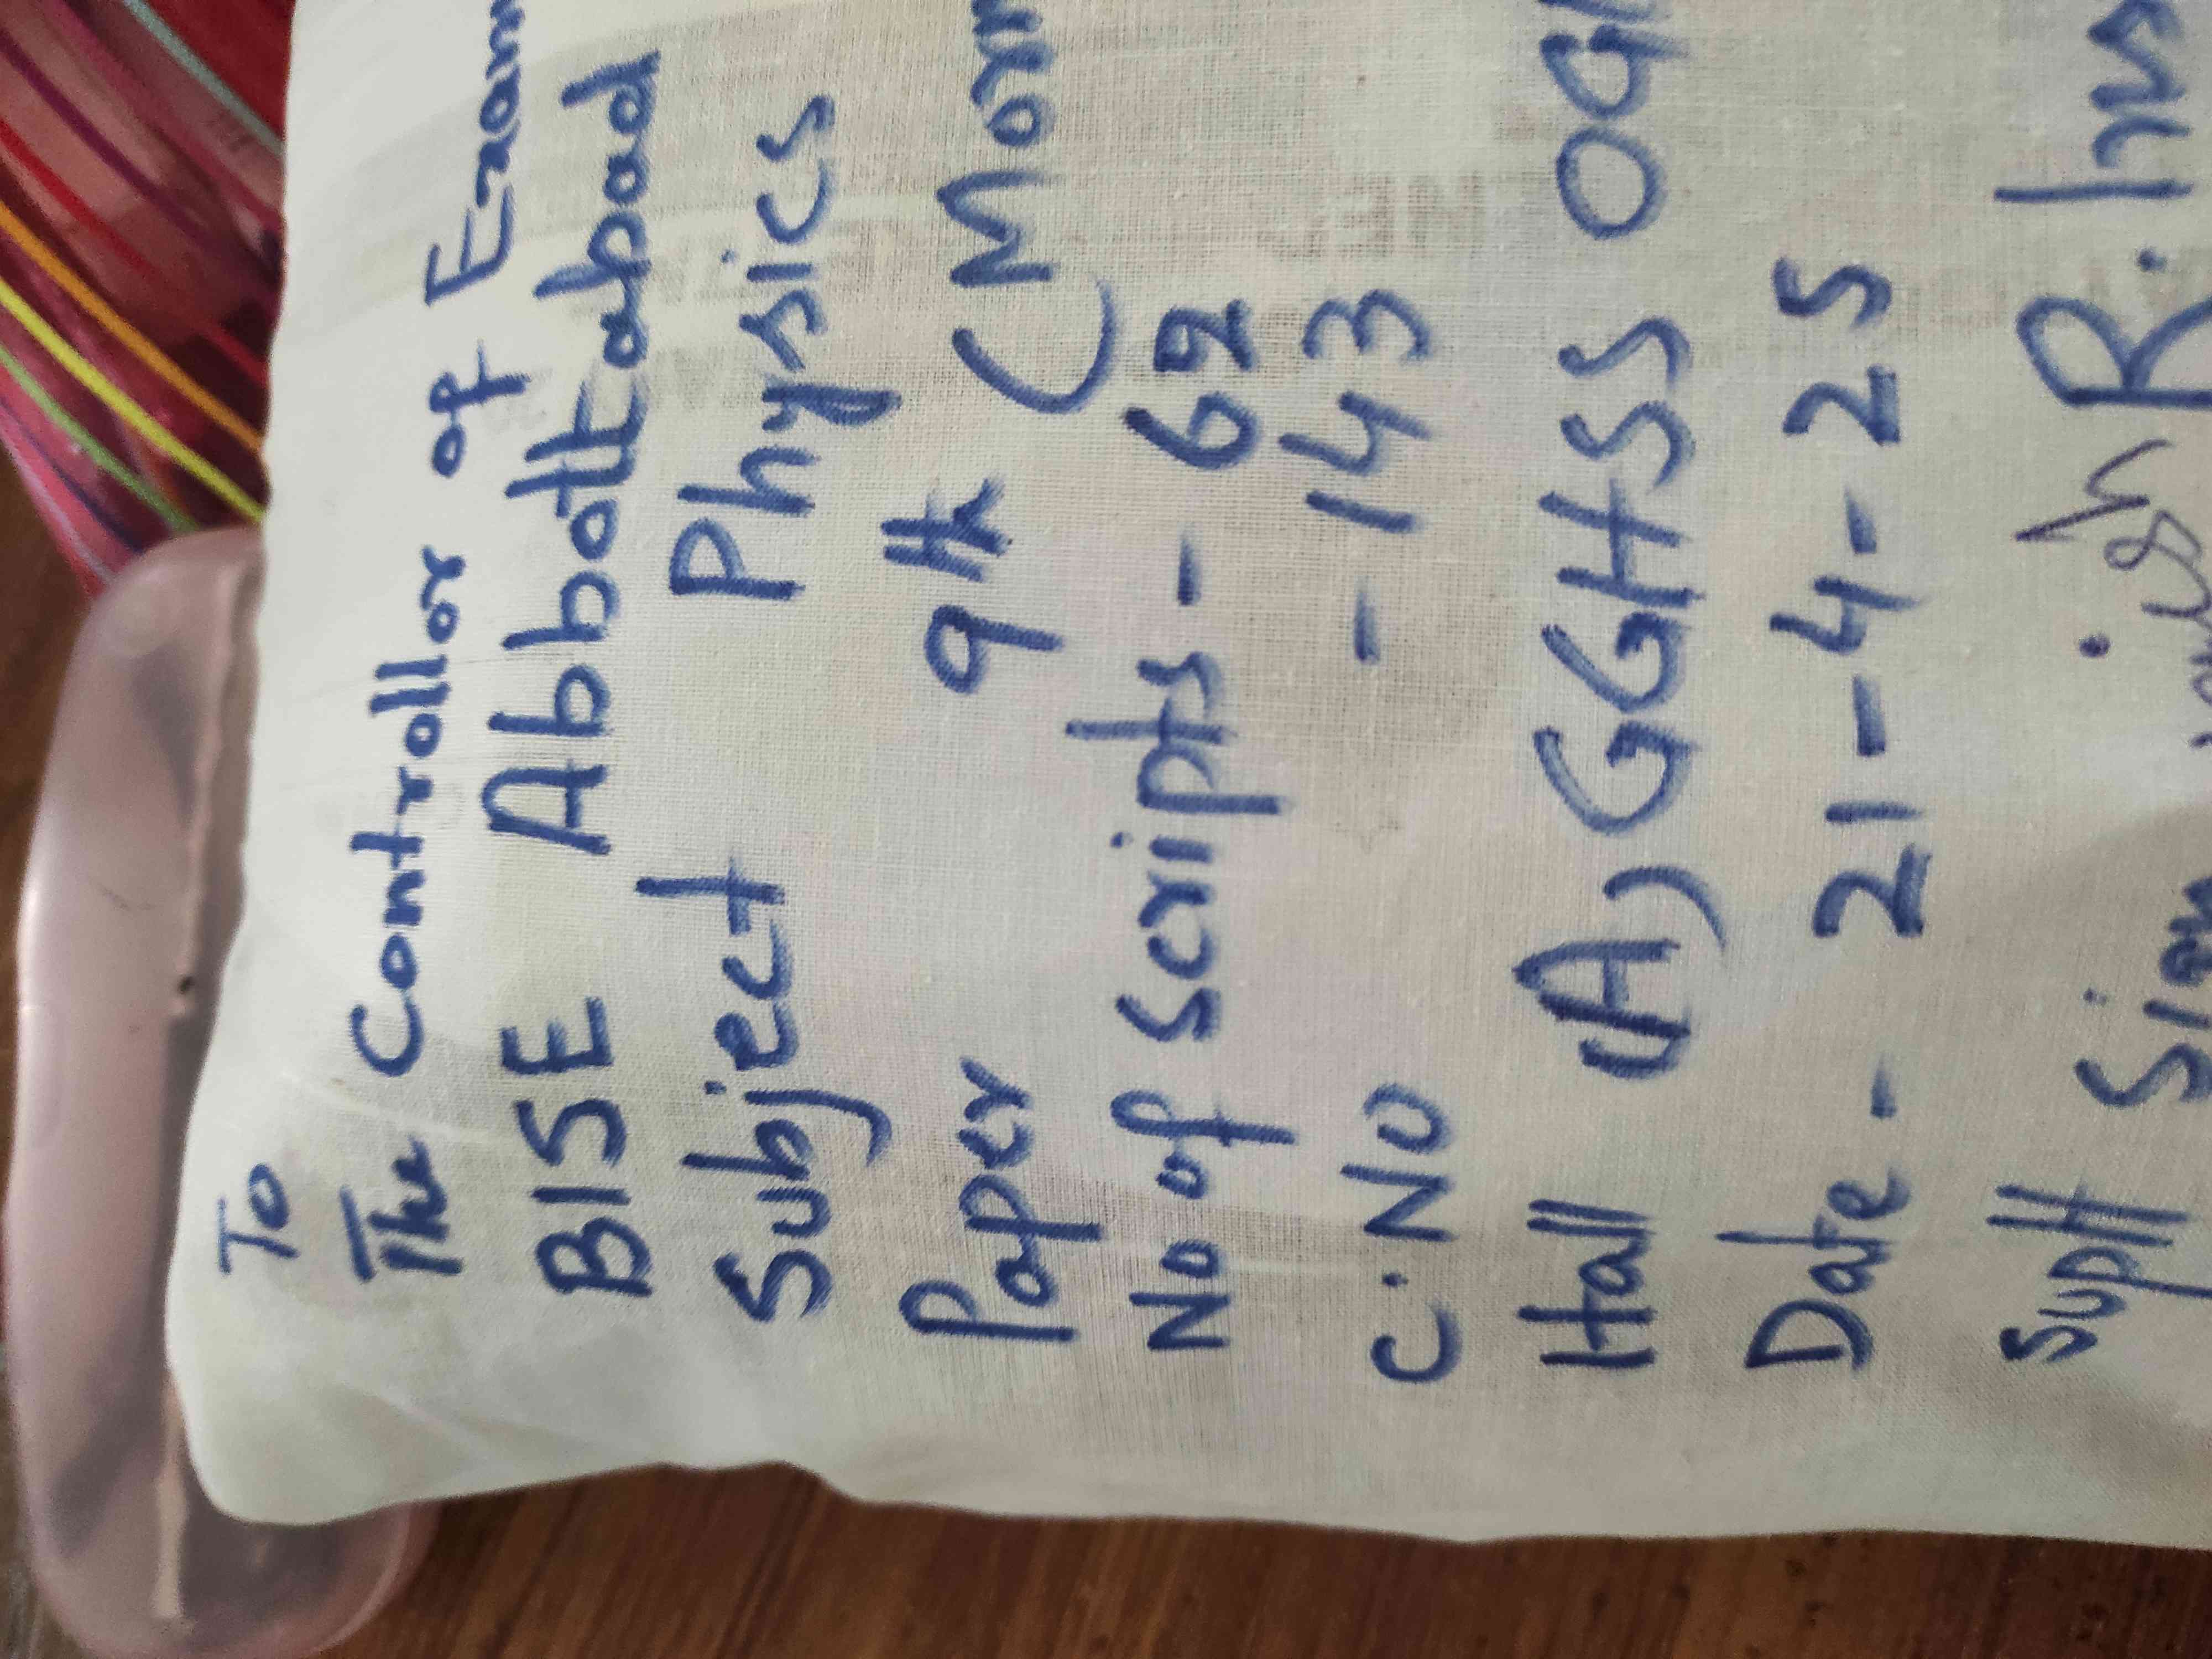 To
The Controllor of Exam
BISE Abbottabad
Subject Physics
Paper 9th (Mor
No of scripts - 62
C.No - 143
Hall (A) GGHSS OGH
Date - 21-4-25
Suptt Sign R.